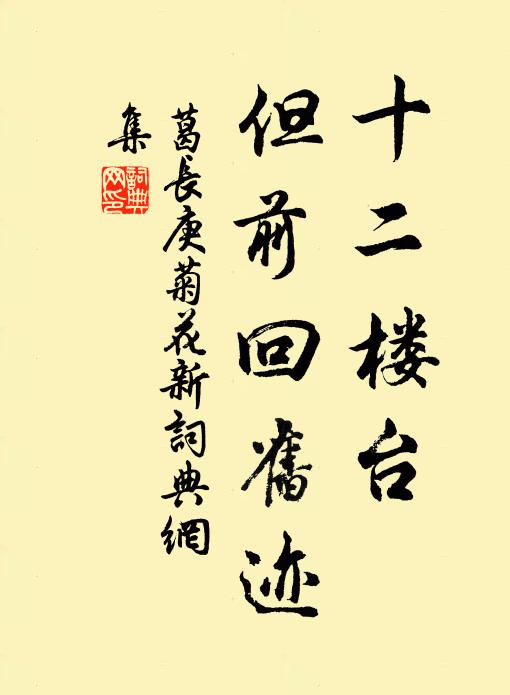 十二楼台
但前回舊迹
葛長庚菊花新詞典網
集
詞典網印